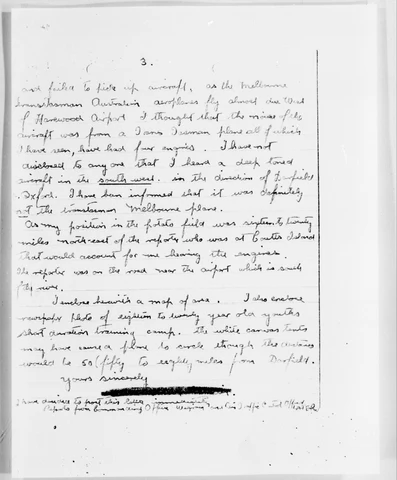 3.
and failed to pick up aircraft, as the Melbourne
transtasman Australian aeroplanes fly almost due West
of Harewood Airport I thought that the noise of the
aircraft was from a Trans Tasman plane all of which
I have seen, have had four engines. I have not
disclosed to any one that I heard a deep toned
aircraft in the south west in the direction of Darfield
Oxford. I have been informed that it was definitely
not the transtasman Melbourne plane.
As my position in the potato field was sixteen to twenty
miles north-east of the reporter who was at Coutts Island
that would account for me hearing the engines.
The reporter was on the road near the airport which is south
of the river.
I enclose herewith a map of area. I also enclose
newspaper photo of eighteen to twenty year old youths
short duration training camp. the white canvas tents
may have caused a plane to circle though the distance
would be 50 (fifty to eighty miles from Darfield.
Yours sincerely
I have decided to post this letter immediately
Reports from Commanding Officer